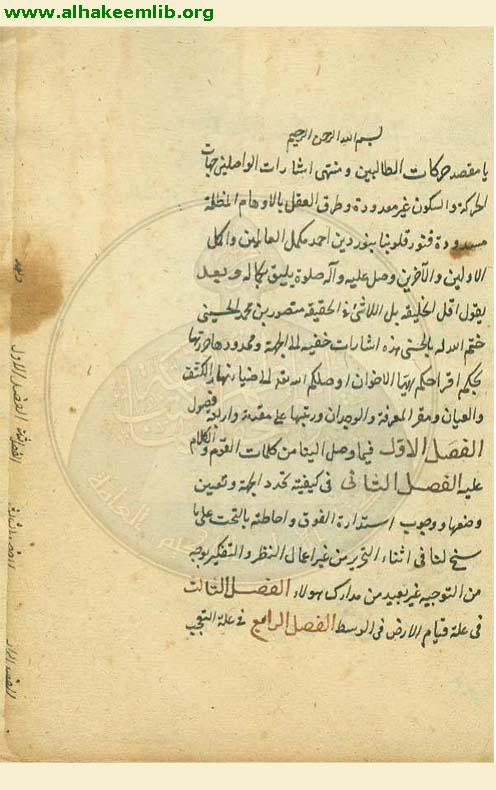 www.alhakeemlib.org
بسم الله الرحمن الرحيم
يا مقصد حركات الطالبين و منتهى اشارات الواصلين جهات
الحركة والسكون غير معدودة وطرق العقل بالاوهام المظلمة
مسدودة فنور قلوبنا بنور دين احمد مكمل العالمين واكمل
الاولين والآخرين وصل عليه وآله صلوة يليق بكماله وبعد
يقول اقل الخليقه بل اللاشئ في الحقيقه منصور بن محمد الحسيني
ختم الله له بالحسنى هذه اشارات خفيه الى الجهة ومحدودها حررتها
بحكم اقراحكم ايها الاخوان اوصلكم الله الى ضيارتها بالكشف
والعيان ومقر المعرفة والوجدان ورتبها على مقدمة واربعة فصول
الفصل الاول فيما وصل الينا من كلمات القوم والكلام
عليه الفصل الثاني في كيفية تحدد الجهة وتعيين
وضعها ووجوب استدارة الفوق واحاطته بالتحت على ما
سنح لنا في اثناء التحرير من غير اعمال النظر والتفكير بوجه
من التوجيه غير بعيد من مدارك هولاء الفصل الثالث
في علة قيام الارض في الوسط الفصل الرابع في علة التبجب
الفصل الاول